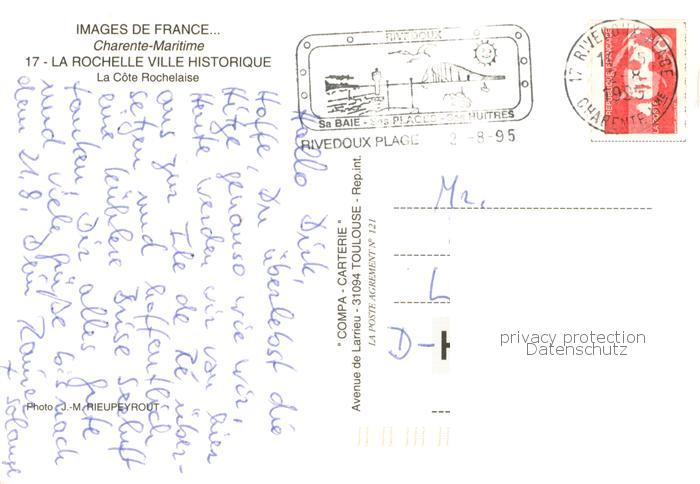 IMAGES DE FRANCE...
Charente-Maritime
17 - LA ROCHELLE VILLE HISTORIQUE
La Côte Rochelaise
RIVEDOUX
Sa BAIE - Ses PLAGES - Ses HUITRES
RIVEDOUX PLAGE 2-8-95
17 RIVEDOUX-PLAGE
CHARENTE-MARITIME
REPUBLIQUE FRANÇAISE
LA POSTE
Hallo Dirk,
Hoffe, Du überlebst die
Hitze genauso wie wir,
Heute werden wir von hier
aus zur Ile de Ré über-
setzen und hoffentlich
eine kühlere Brise Seeluft
tanken. Dir alles Gute
und viele Grüße bis nach
dem 21.8. Dein Rainer
+ Solange
" COMPA - CARTERIE "
Avenue de Larrieu - 31094 TOULOUSE - Rep.int.
LA POSTE AGREMENT N° 121
Photo : J.-M. RIEUPEYROUT
Mr.
L
D-H
privacy protection
Datenschutz